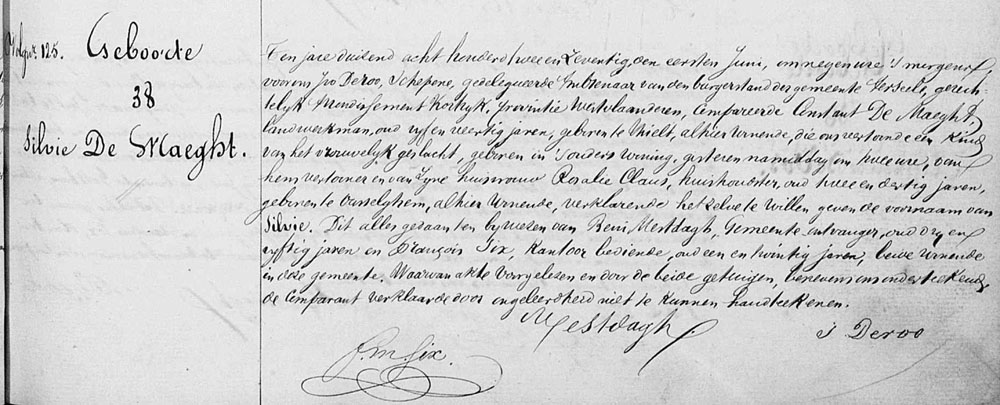 Volgnr. 125.
Geboorte
38
Silvie De Maeght.
Ten jare duizend acht honderd twee en zeventig den eersten Juni, om negen ure 's morgens,
voor ons Ivo Deroo, Schepene, gedelegueerde Ambtenaar van den burgerstand der gemeente Gerseele, gerech-
telyk Arrondissement Kortryk, Provintie Westvlaanderen, Compareerde Constant De Maeght,
landwerkman, oud vyf en veertig jaren, geboren te Thielt, alhier Wonende, die ons vertoonde een Kind
van het vrouwelyk geslacht, geboren in 's ouders Woning, gisteren namiddag om twee ure, van
hem vertooner en van Zyne huisvrouw Rosalie Claus, huishoudster, oud twee en dertig jaren,
geboren te Oosselghem, alhier Wonende, verklarende hetzelve te Willen geven de voornaam van
Silvie. Dit alles gedaan ten bywezen van Remi Mestdagh, Gemeente-ontvanger, oud dry en
vyftig jaren en François Six, Kantoor bediende, oud een en twintig jaren, beide Wonende
in deze gemeente. Waarvan akte voorgelezen en door de beide getuigen, benevens ons onderteekend,
de Comparant verklaarde door ongeleerdheid niet te kunnen handteekenen.
Mestdagh
I Deroo
f.m. Six.